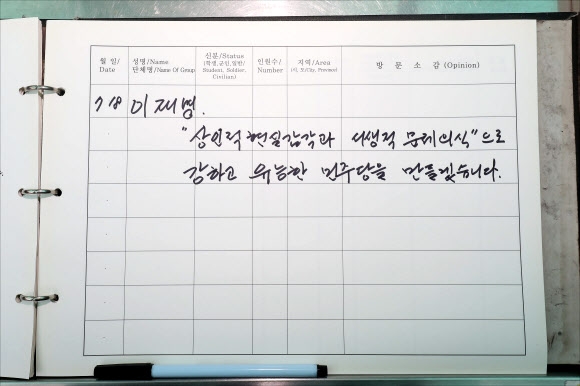 월 일/ 성명/Name 신분/Status 인원수/ 지역/Area 방 문 소 감 (Opinion)
Date 단체명/Name Of Group (학생,군인,일반/ Number (시, 도/City, Province)
Student, Soldier,
Civilian)
7 18 이재명.
"상인적 현실감각과 서생적 문제의식"으로
강하고 유능한 민주당을 만들겠습니다.